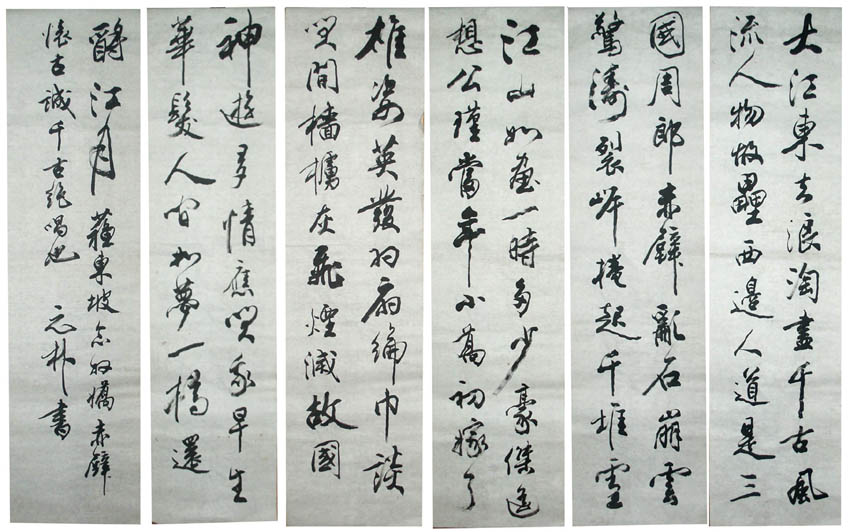 大江東去浪淘盡千古風
流人物故壘西邊人道是三
國周郎赤壁亂石崩雲
驚濤裂岸捲起千堆雪
江山如畫一時多少豪傑遙
想公瑾當年小喬初嫁了
雄姿英發羽扇綸巾談
笑間檣櫓灰飛煙滅故國
神遊多情應笑我早生
華髮人間如夢一樽還
酹江月 蘇東坡念奴嬌赤壁
懷古誠千古絕唱也 書